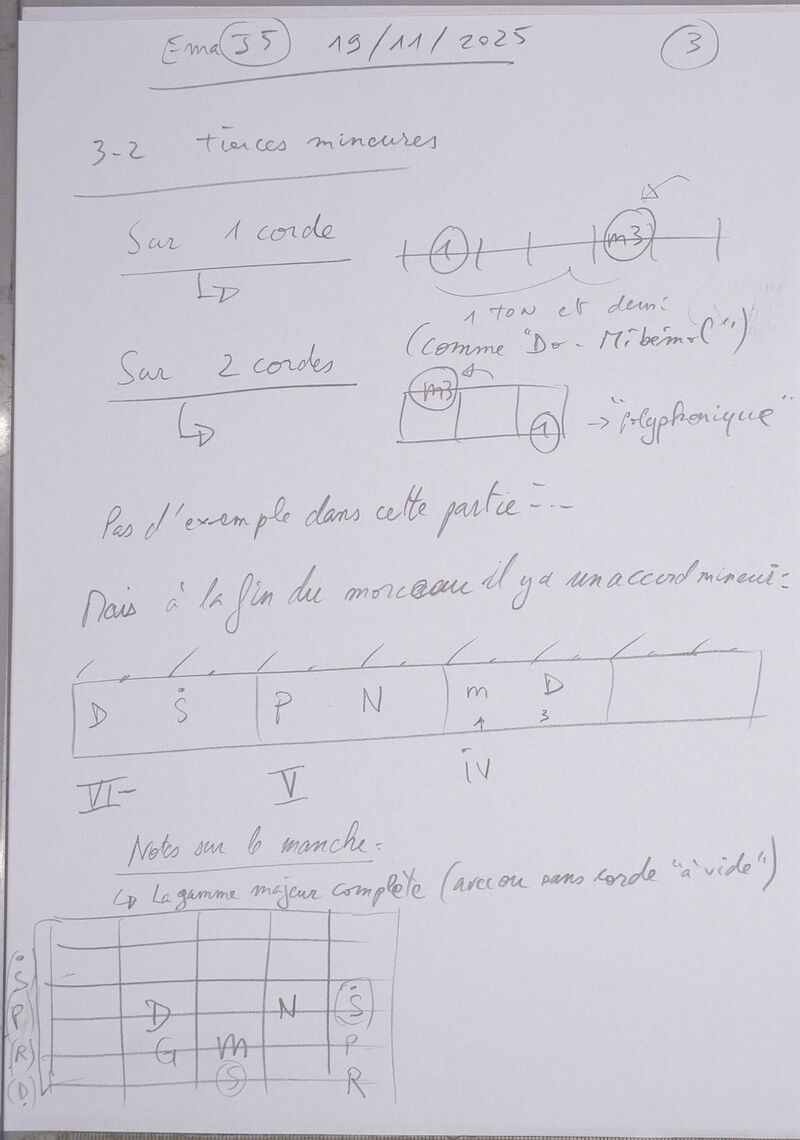 Ema J5 19/11/2025 3
3-2 tierces mineures
Sur 1 corde
1 m3
1 ton et demi
(comme "Do - Mibémol")
Sur 2 cordes
m3
1 → "polyphonique"
Pas d'exemple dans cette partie...
Mais à la fin du morceau il y a un accord mineur:
D Ṡ P N m D
1 3
VI- V iv
Notes sur le manche:
↳ La gamme majeur complète (avec ou sans corde "à vide")
Ṡ
P D N Ṡ
R G m P
D S R